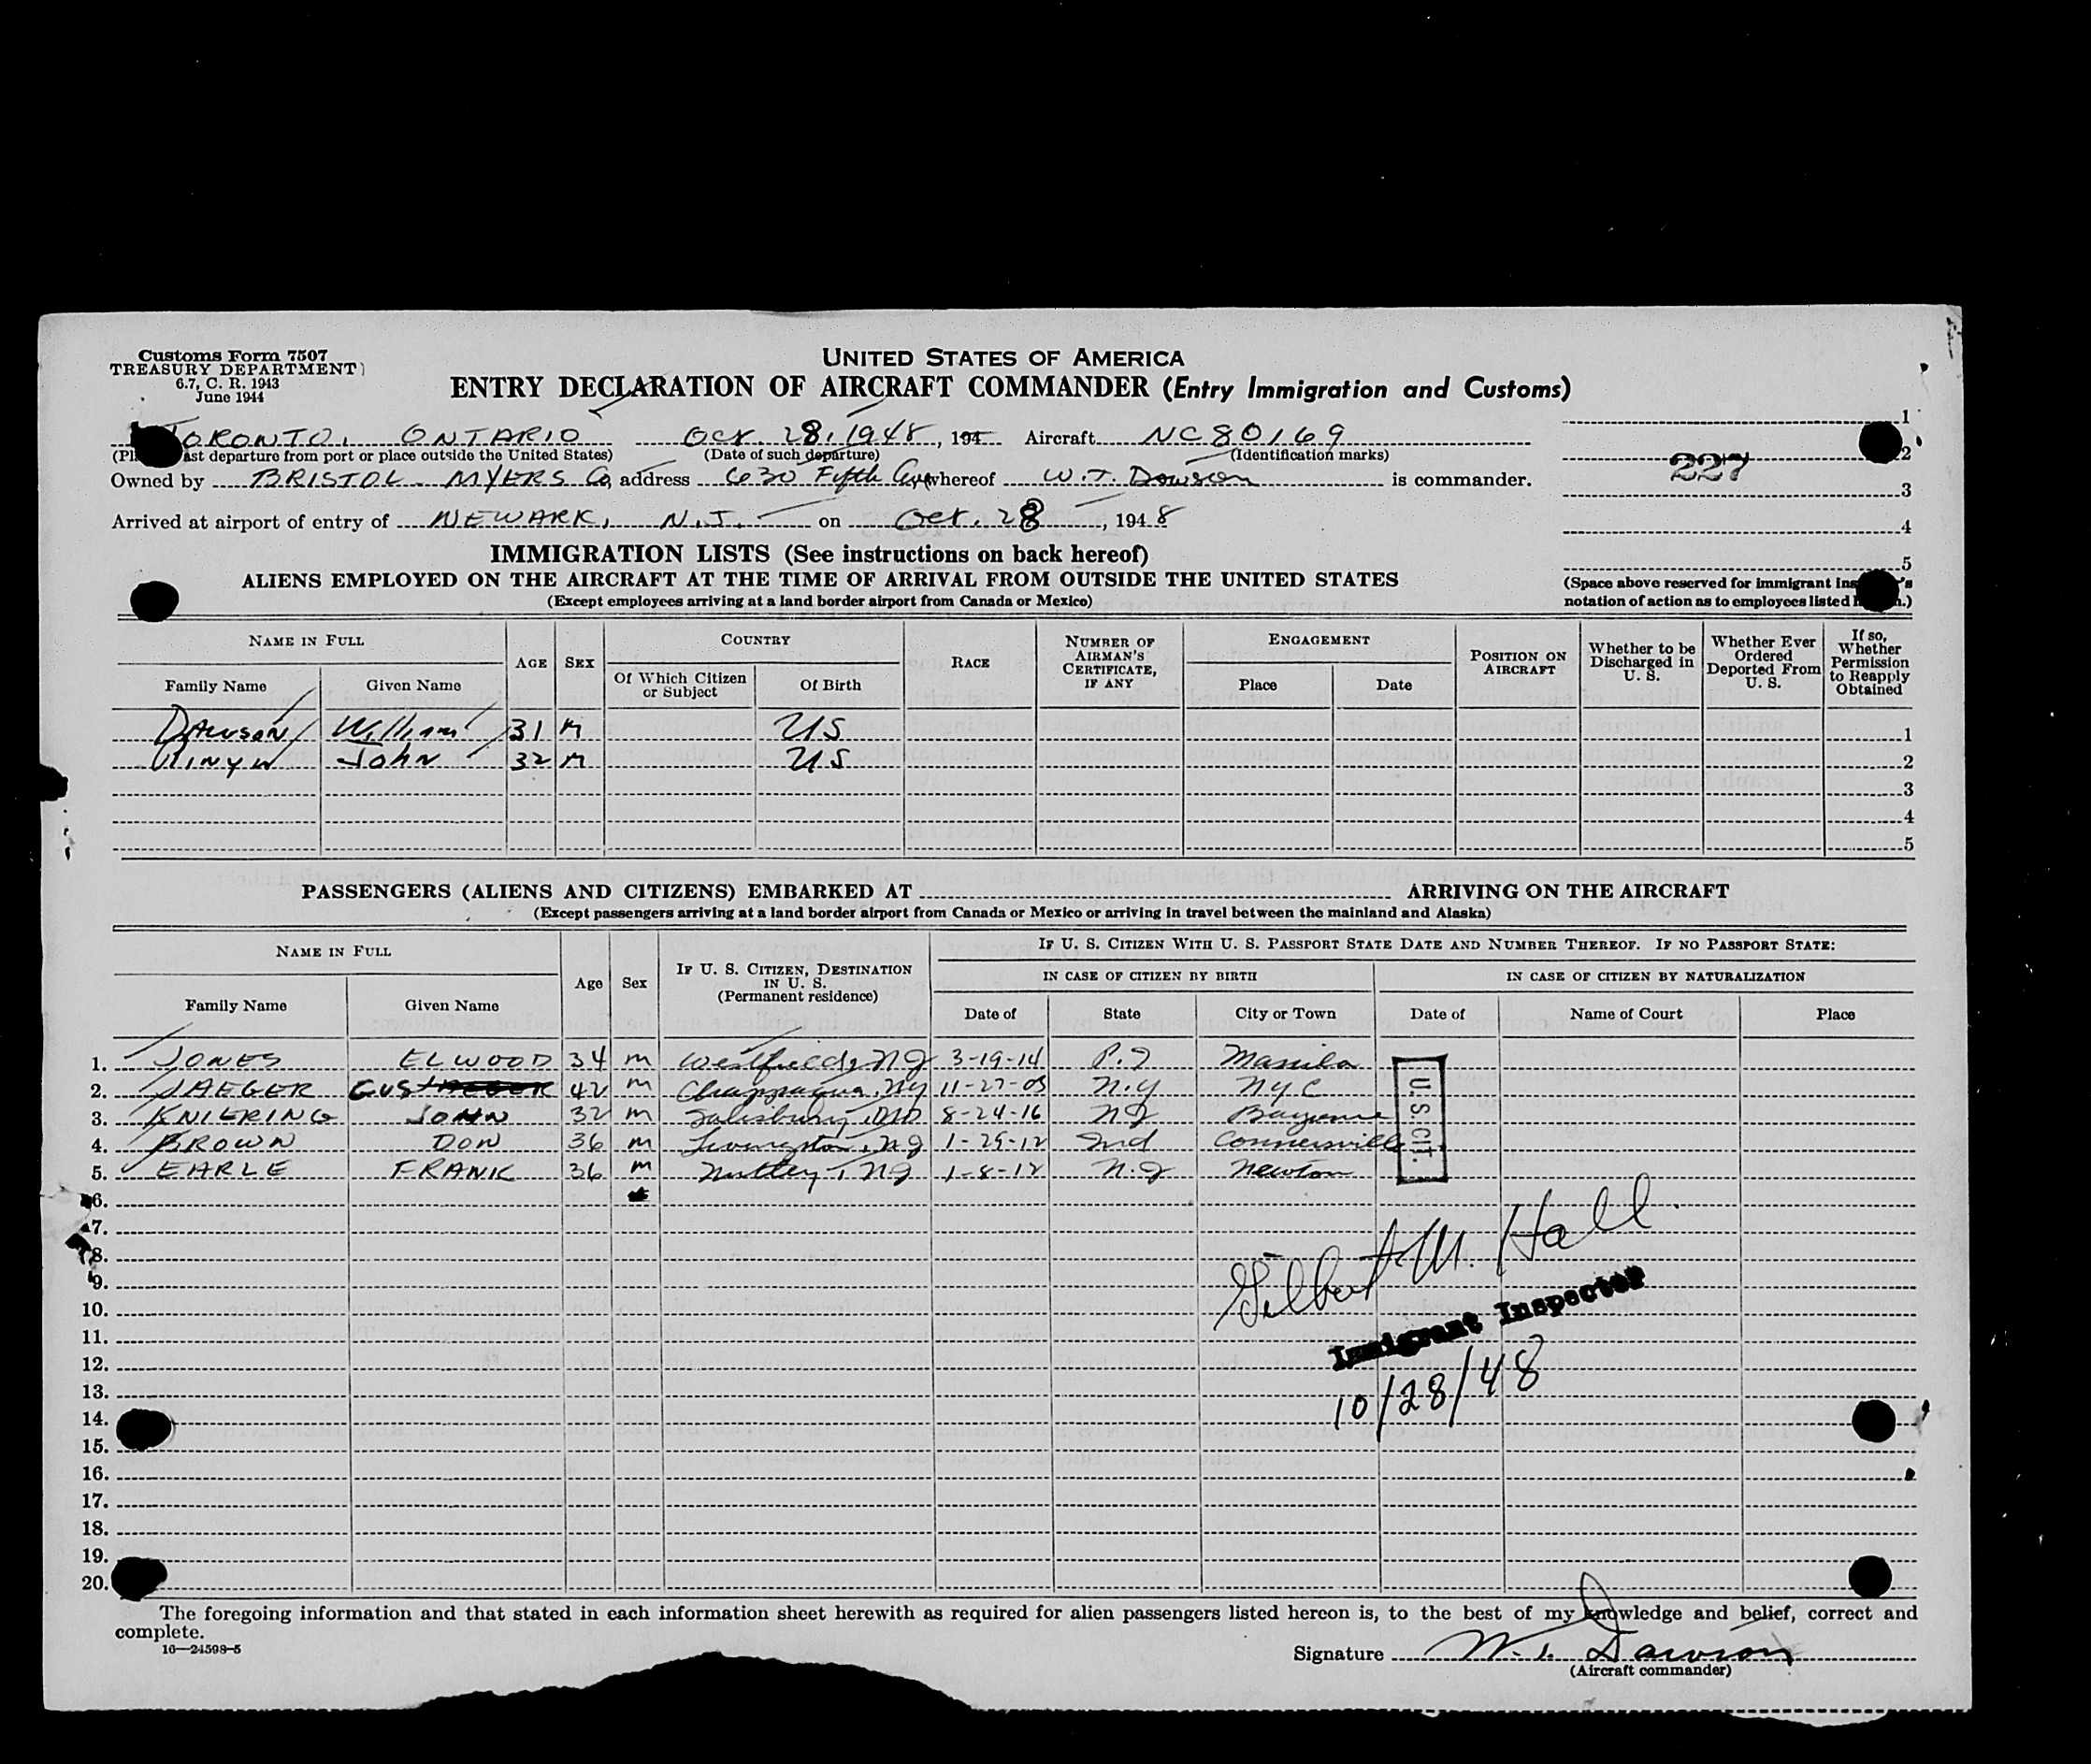 Customs Form 7507
TREASURY DEPARTMENT
6.7, C. R. 1943
June 1944
UNITED STATES OF AMERICA
ENTRY DECLARATION OF AIRCRAFT COMMANDER (Entry Immigration and Customs)
TORONTO, ONTARIO Oct. 28, 1948, 194 Aircraft NC80169
(Pl ast departure from port or place outside the United States) (Date of such departure) (Identification marks)
Owned by BRISTOL - MYERS Co, address 630 Fifth Ave, whereof W. T. Dawson is commander.
Arrived at airport of entry of NEWARK, N.J. on Oct. 28, 1948
1
2
227
3
4
5
(Space above reserved for immigrant ins 's
notation of action as to employees listed h n.)
IMMIGRATION LISTS (See instructions on back hereof)
ALIENS EMPLOYED ON THE AIRCRAFT AT THE TIME OF ARRIVAL FROM OUTSIDE THE UNITED STATES
(Except employees arriving at a land border airport from Canada or Mexico)
NAME IN FULL AGE SEX COUNTRY RACE NUMBER OF AIRMAN'S CERTIFICATE, IF ANY ENGAGEMENT POSITION ON AIRCRAFT Whether to be Discharged in U. S. Whether Ever Ordered Deported From U. S. If so, Whether Permission to Reapply Obtained
Family Name Given Name Of Which Citizen or Subject Of Birth Place Date
DAWSON William 31 M US 1
John 32 M US 2
3
4
5
PASSENGERS (ALIENS AND CITIZENS) EMBARKED AT ARRIVING ON THE AIRCRAFT
(Except passengers arriving at a land border airport from Canada or Mexico or arriving in travel between the mainland and Alaska)
NAME IN FULL Age Sex IF U. S. CITIZEN, DESTINATION IN U. S. (Permanent residence) IF U. S. CITIZEN WITH U. S. PASSPORT STATE DATE AND NUMBER THEREOF. IF NO PASSPORT STATE:
IN CASE OF CITIZEN BY BIRTH IN CASE OF CITIZEN BY NATURALIZATION
Family Name Given Name Date of State City or Town Date of Name of Court Place
1. JONES ELWOOD 34 m Westfield, NJ 3-19-14 P.I Manila
2. JAEGER GUS 42 m Chappaqua, NY 11-27-05 N.Y NYC
3. KNIERING JOHN 32 m Salisbury, MD 8-24-16 NJ Bayonne
4. BROWN DON 36 m Livingston, NJ 1-25-12 Ind Connersville
5. EARLE FRANK 36 m Nutley, NJ 1-8-12 N.J Newton
U.S.CIT.
6.
7.
8.
9.
10.
11.
12.
13.
14.
15.
16.
17.
18.
19.
20.
Gilbert M. Hall
Immigrant Inspector
10/28/48
The foregoing information and that stated in each information sheet herewith as required for alien passengers listed hereon is, to the best of my knowledge and belief, correct and
complete.
16—24598-5
Signature W. T. Dawson
(Aircraft commander)